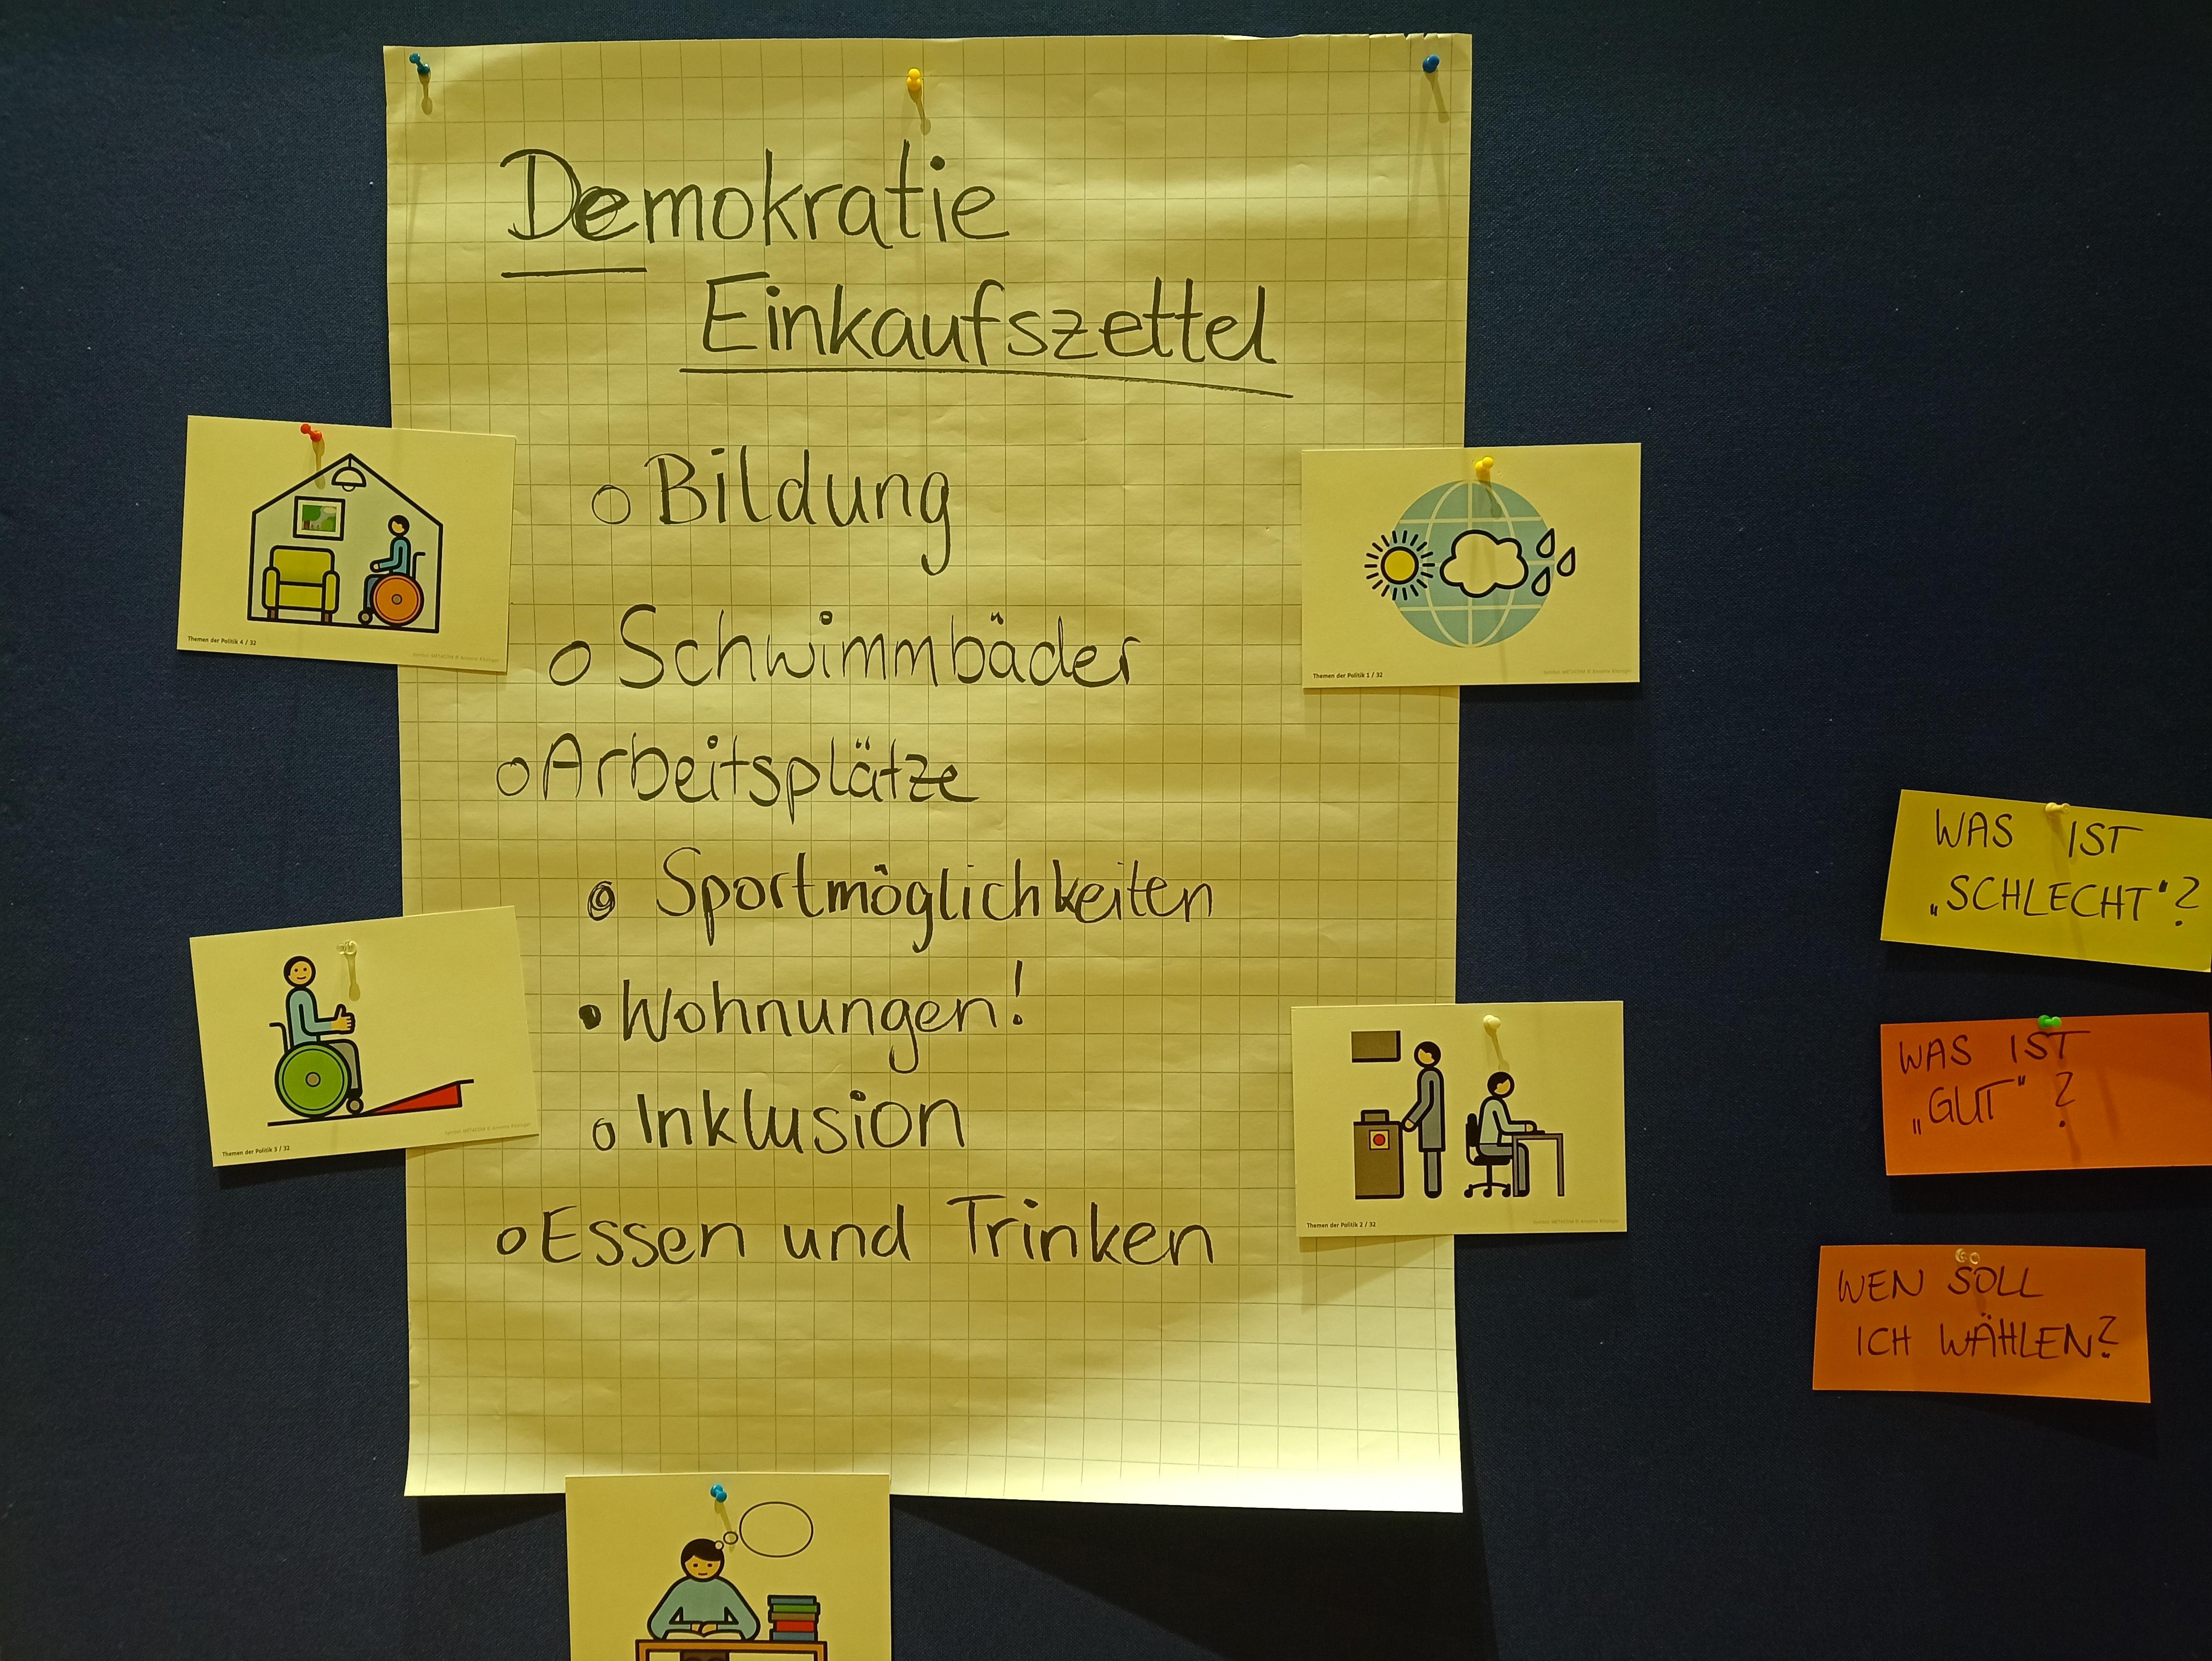 Demokratie
Einkaufszettel
Bildung
Schwimmbäder
Arbeitsplätze
Sportmöglichkeiten
Wohnungen!
Inklusion
Essen und Trinken
Themen der Politik 4 / 32
Themen der Politik 3 / 32
Themen der Politik 1 / 32
Themen der Politik 2 / 32
WAS IST
„SCHLECHT"?
WAS IST
„GUT"?
WEN SOLL
ICH WÄHLEN?